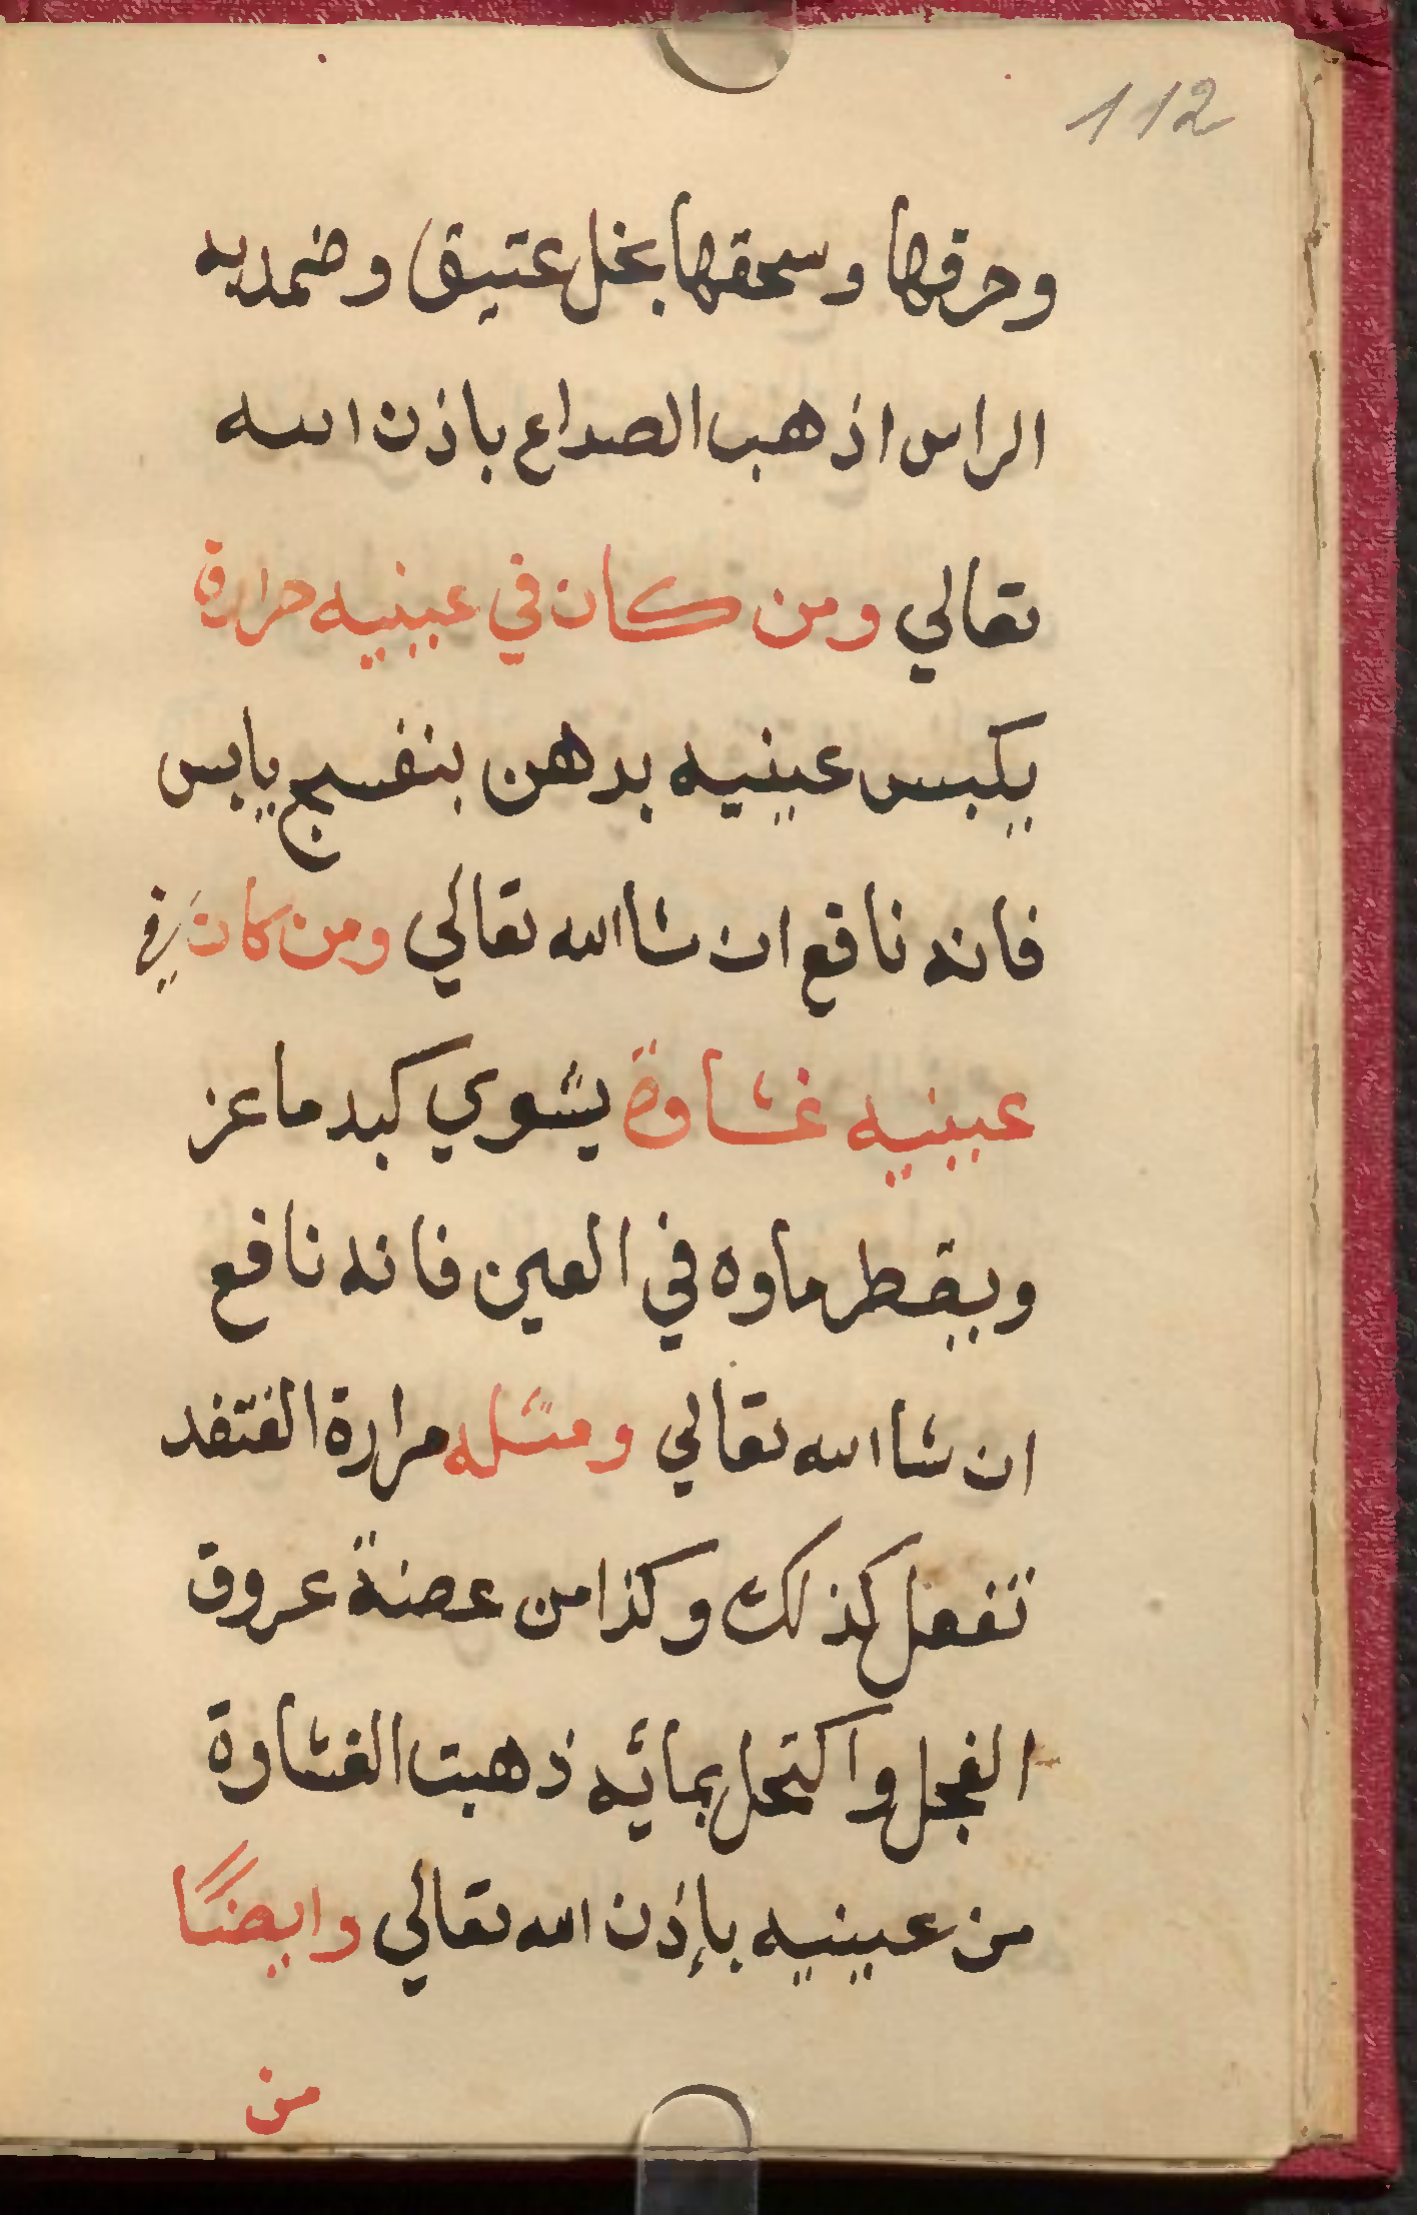 112
وحرقها وسحقها بخل عتيق وضمد به
الراس اذهب الصداع باذن الله
تعالي ومن كان في عينيه حرارة
يكبس عينيه بدهن بنفسج يابس
فانه نافع ان شا الله تعالي ومن كان في
عينيه غشاوة يشوي كبد ماعز
ويقطر ماوه في العين فانه نافع
ان شا الله تعالي ومثله مرارة القنفد
تفعل كذلك وكذا من عصنة عروق
الفجل واكتحل بمائيه ذهبت الغشاوة
من عينيه بإذن الله تعالي وايضًا
من